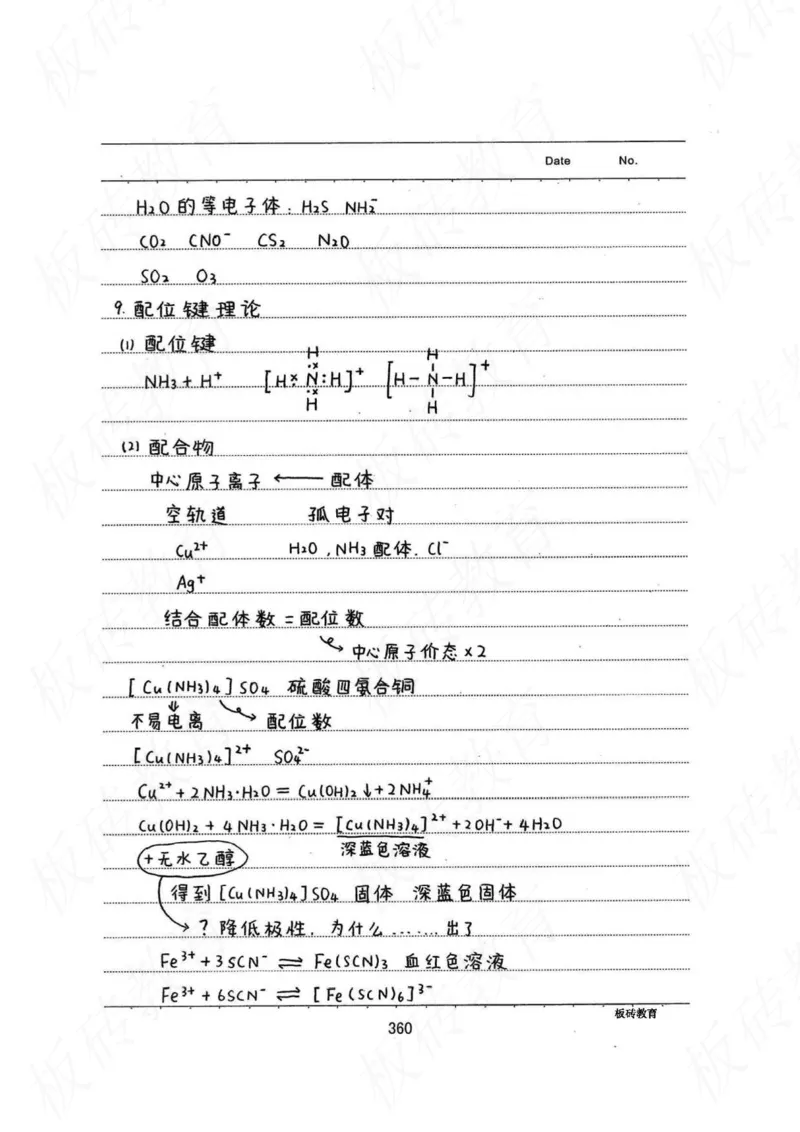 Date No.
H₂O的等电子体: H₂S NH₂⁻
CO₂ CNO⁻ CS₂ N₂O
SO₂ O₃
9. 配位键理论
(1) 配位键
NH₃ + H⁺ [H N H]⁺ [H-N-H]⁺
H H
H H
(2) 配合物
中心原子离子 ← 配体
空轨道 孤电子对
Cu²⁺ H₂O, NH₃配体. Cl⁻
Ag⁺
结合配体数 = 配位数
中心原子价态×2
[Cu(NH₃)₄]SO₄ 硫酸四氨合铜
不易电离 配位数
[Cu(NH₃)₄]²⁺ SO₄²⁻
Cu²⁺ + 2NH₃·H₂O = Cu(OH)₂↓ + 2NH₄⁺
Cu(OH)₂ + 4NH₃·H₂O = [Cu(NH₃)₄]²⁺ + 2OH⁻ + 4H₂O
+无水乙醇 深蓝色溶液
得到[Cu(NH₃)₄]SO₄ 固体 深蓝色固体
? 降低极性, 为什么......出了
Fe³⁺ + 3SCN⁻ ⇌ Fe(SCN)₃ 血红色溶液
Fe³⁺ + 6SCN⁻ ⇌ [Fe(SCN)₆]³⁻
板砖教育
360